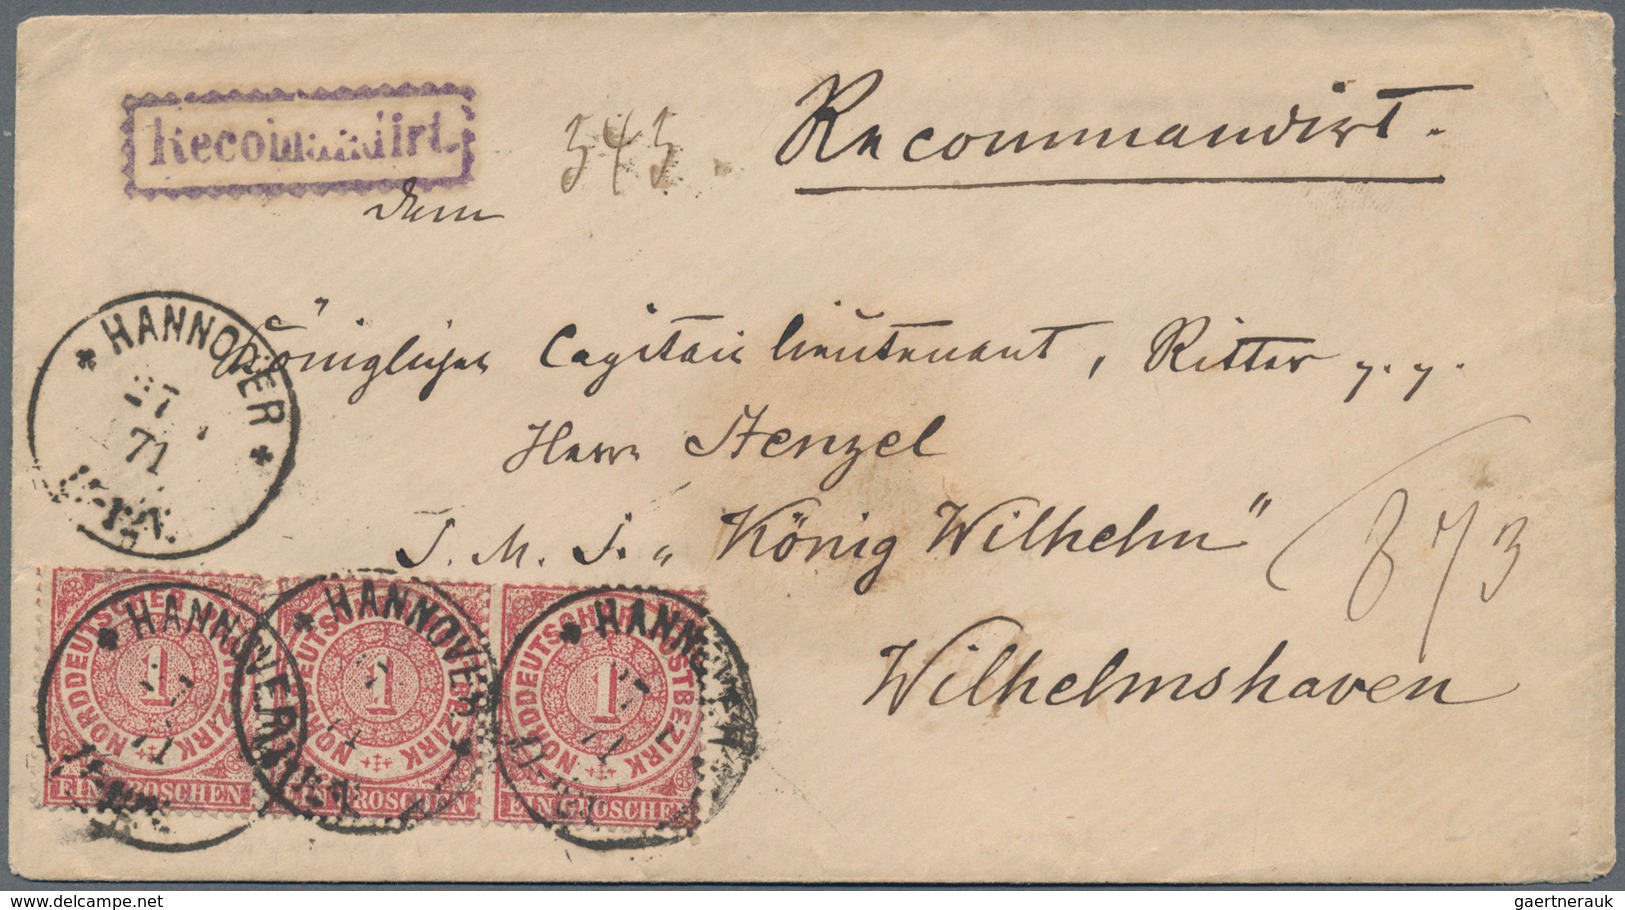 Recommandirt.
545.
Recommandirt.
Dem
Königlichen Capitain lieutenant, Ritter p. p.
Herrn Stenzel
S. M. S. „König Wilhelm"
Wilhelmshaven
873
* HANNOVER *
71
* HANNOVER
NORDDEUTSCHER POSTBEZIRK
1
EIN GROSCHEN
* HANNOVER *
NORDDEUTSCHER POSTBEZIRK
1
EIN GROSCHEN
* HANNOVER
NORDDEUTSCHER POSTBEZIRK
1
EIN GROSCHEN
www.delcampe.net
gaertnerauk